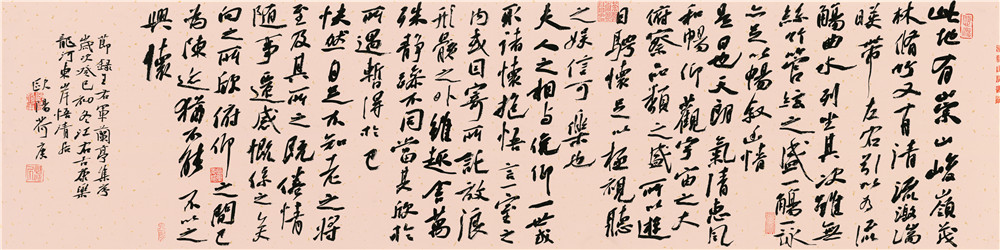 此地有崇山峻嶺茂
林脩竹又有清流激湍
暎帶左右引以為流
觴曲水列坐其次雖無
絲竹管絃之盛一觴一詠
亦足以暢敘幽情
是日也天朗氣清惠風
和暢仰觀宇宙之大
俯察品類之盛所以遊
目騁懷足以極視聽
之娛信可樂也
夫人之相與俯仰一世或
取諸懷抱悟言一室之
内或因寄所託放浪
形骸之外雖趣舍萬
殊靜躁不同當其欣於
所遇暫得於己
快然自足不知老之將
至及其所之既倦情
隨事遷感慨係之矣
向之所欣俯仰之間已
為陳迹猶不能不以之
興懷
節錄王右軍蘭亭集序
歲次癸巳初冬江右古康樂
龍河東岸悟情居
歐陽荷庚